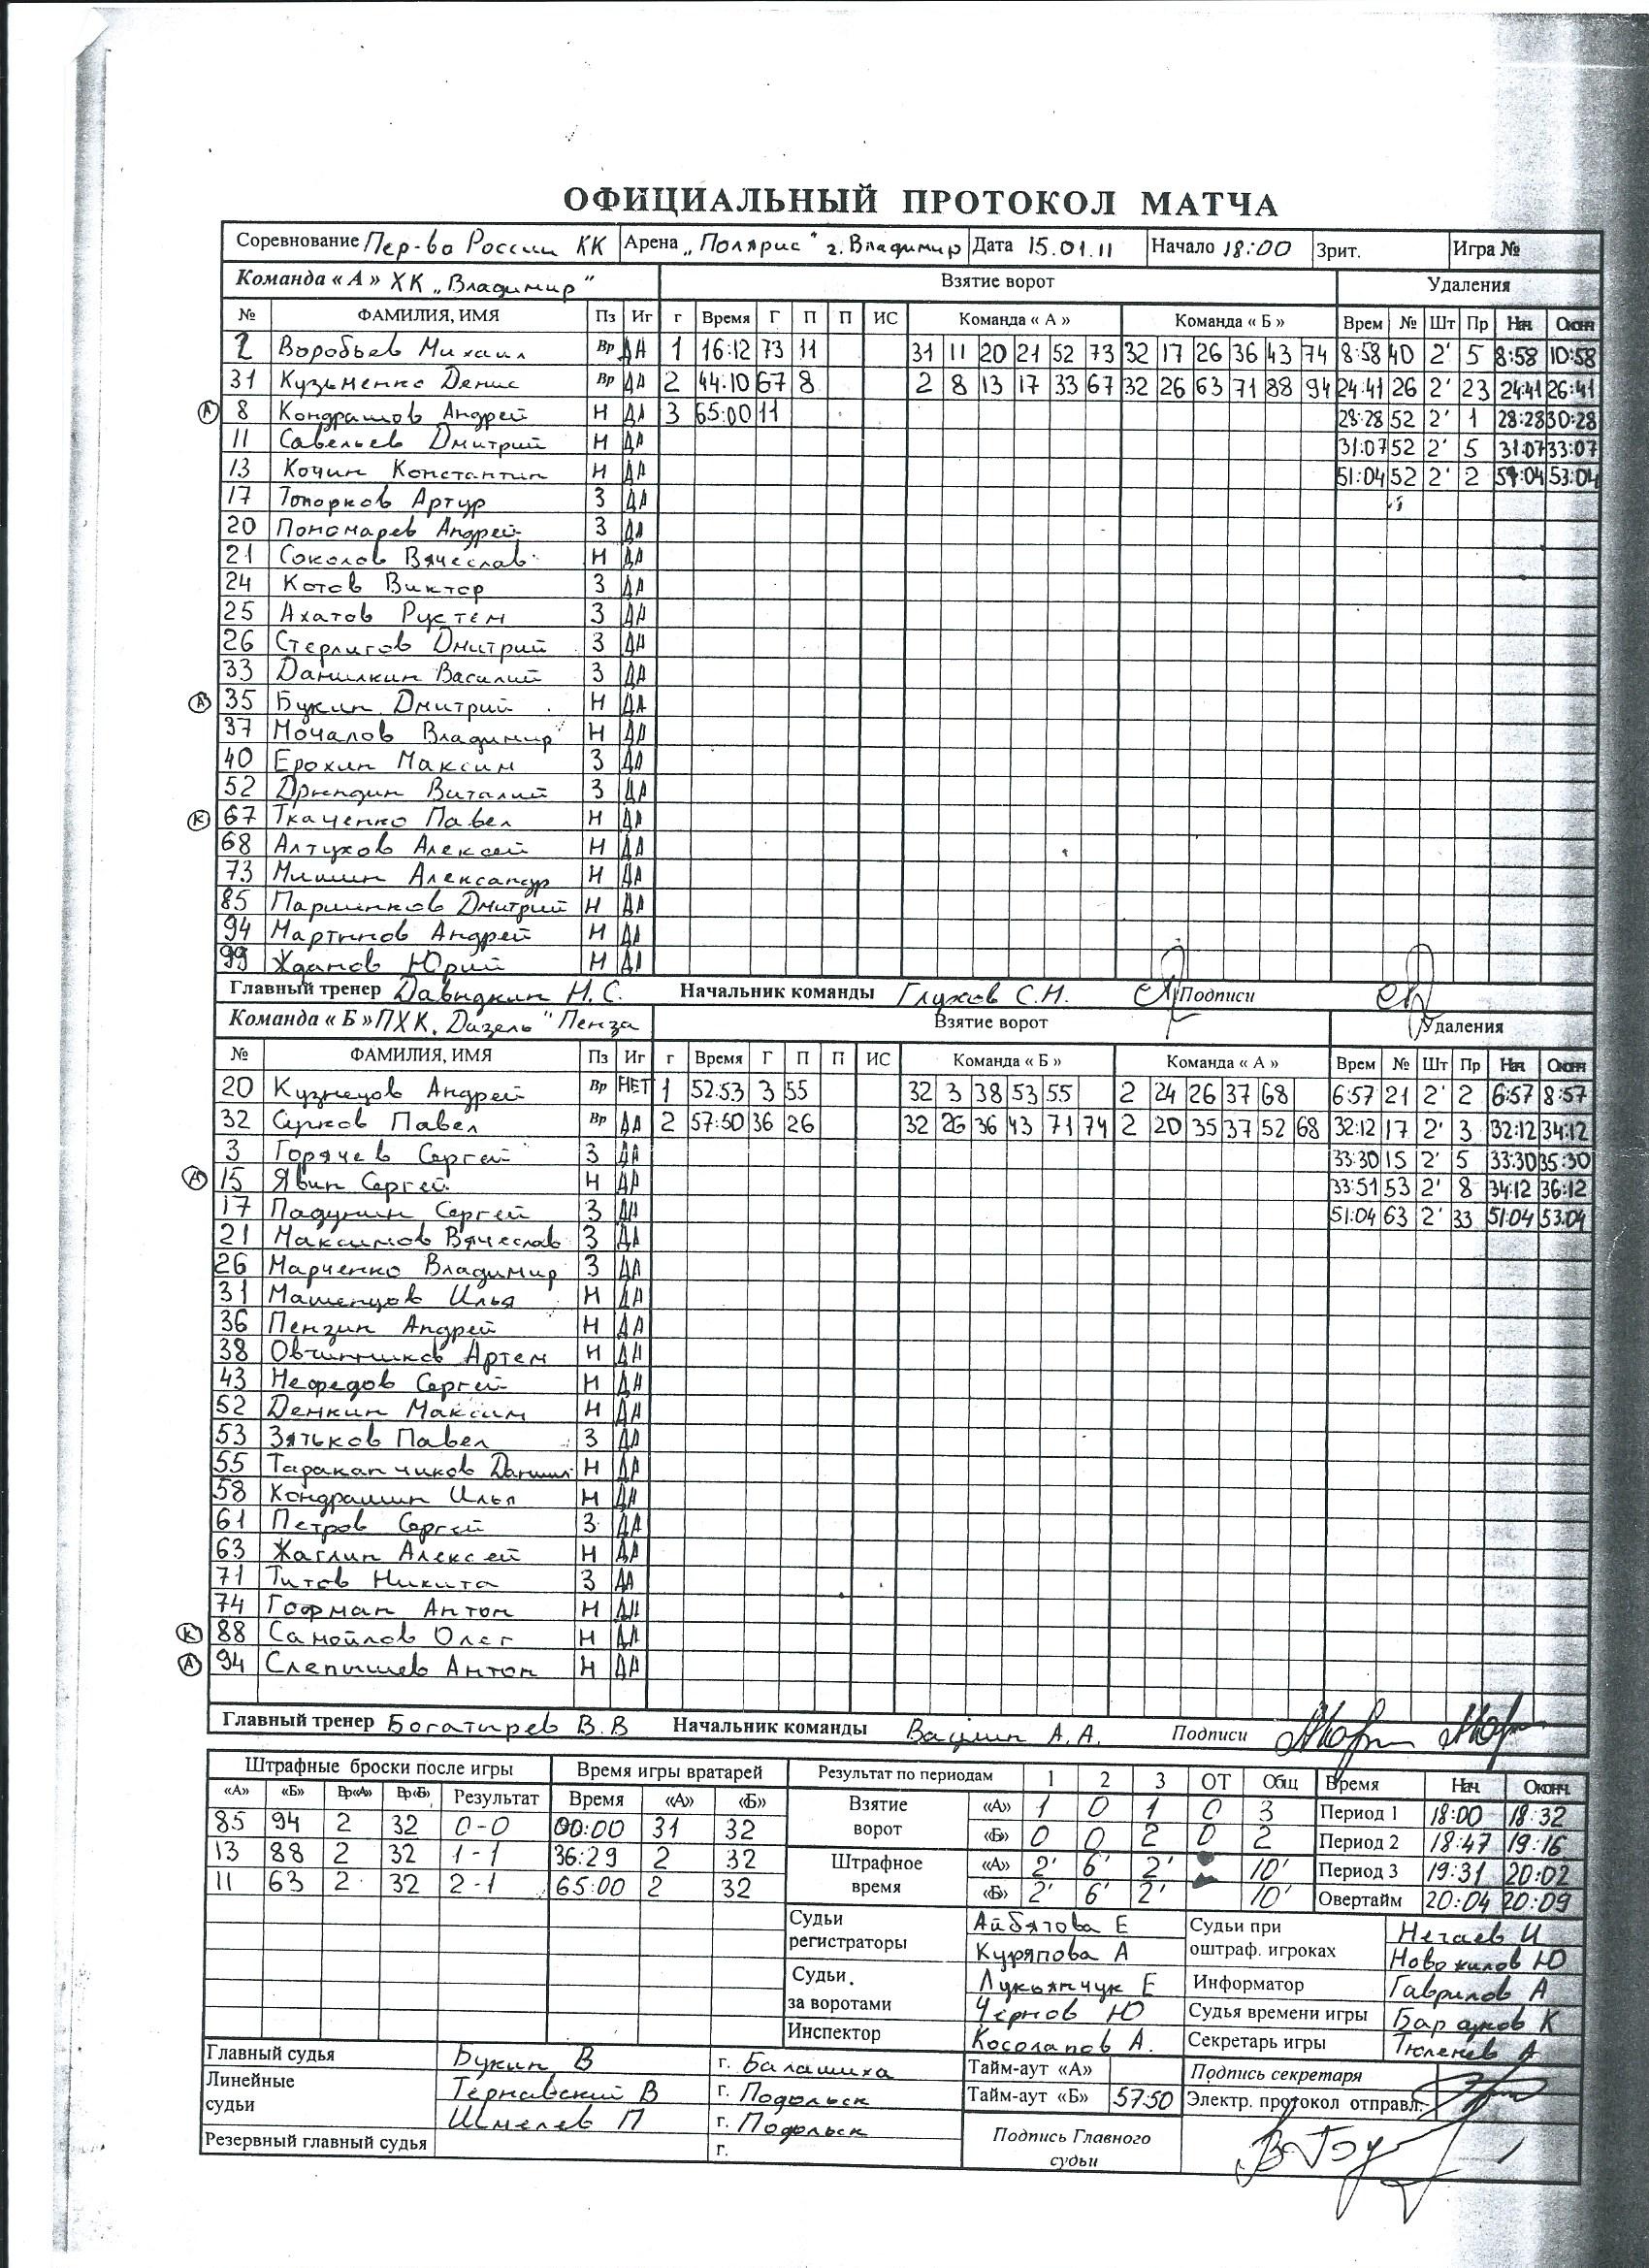 ОФИЦИАЛЬНЫЙ ПРОТОКОЛ МАТЧА
Соревнование Пер-во России КК Арена „Полярис" г. Владимир Дата 15.01.11 Начало 18:00 Зрит. Игра №
Команда « А » ХК „Владимир" Взятие ворот Удаления
№ ФАМИЛИЯ, ИМЯ Пз Иг г Время Г П П ИС Команда « А » Команда « Б » Врем № Шт Пр Нач Оконч
2 Воробьев Михаил Вр ДА 1 16:12 73 11 31 11 20 21 52 73 32 17 26 36 43 74 8:58 40 2' 5 8:58 10:58
31 Кузьменко Денис Вр ДА 2 44:10 67 8 2 8 13 17 33 67 32 26 63 71 88 94 24:41 26 2' 23 24:41 26:41
А 8 Кондрашов Андрей Н ДА 3 65:00 11 28:28 52 2' 1 28:28 30:28
11 Савельев Дмитрий Н ДА 31:07 52 2' 5 31:07 33:07
13 Кочин Константин Н ДА 51:04 52 2' 2 51:04 53:04
17 Топорков Артур З ДА
20 Пономарев Андрей З ДА
21 Соколов Вячеслав Н ДА
24 Котов Виктор З ДА
25 Ахатов Рустем З ДА
26 Стерлигов Дмитрий З ДА
33 Данилкин Василий З ДА
А 35 Букин Дмитрий Н ДА
37 Мочалов Владимир Н ДА
40 Ерохин Максим З ДА
52 Дрындин Виталий З ДА
К 67 Ткаченко Павел Н ДА
68 Алтухов Алексей Н ДА
73 Мишин Александр Н ДА
85 Паршенков Дмитрий Н ДА
94 Мартынов Андрей Н ДА
99 Жданов Юрий Н ДА
Главный тренер Давыдкин Н.С. Начальник команды Глухов С.Н. Подписи
Команда « Б » ПХК „Дизель" Пенза Взятие ворот Удаления
№ ФАМИЛИЯ, ИМЯ Пз Иг г Время Г П П ИС Команда « Б » Команда « А » Врем № Шт Пр Нач Оконч
20 Кузнецов Андрей Вр НЕТ 1 52:53 3 55 32 3 38 53 55 2 24 26 37 68 6:57 21 2' 2 6:57 8:57
32 Сурков Павел Вр ДА 2 57:50 36 26 32 26 36 43 71 74 2 20 35 37 52 68 32:12 17 2' 3 32:12 34:12
3 Горячев Сергей З ДА 33:30 15 2' 5 33:30 35:30
А 15 Явин Сергей Н ДА 33:51 53 2' 8 34:12 36:12
17 Падунин Сергей З ДА 51:04 63 2' 33 51:04 53:04
21 Максимов Вячеслав З ДА
26 Марченко Владимир З ДА
31 Машенцов Илья Н ДА
36 Пензин Андрей Н ДА
38 Овчинников Артем Н ДА
43 Нефедов Сергей Н ДА
52 Демкин Максим Н ДА
53 Зятьков Павел З ДА
55 Тараканчиков Даниил Н ДА
58 Кондрашин Илья Н ДА
61 Петров Сергей З ДА
63 Жаглин Алексей Н ДА
71 Титов Никита З ДА
74 Гофман Антон Н ДА
К 88 Самойлов Олег Н ДА
А 94 Слепышев Антон Н ДА
Главный тренер Богатырев В.В Начальник команды Ваулин А.А. Подписи
Штрафные броски после игры Время игры вратарей Результат по периодам 1 2 3 ОТ Общ Время Нач. Оконч.
«А» «Б» Вр«А» Вр«Б» Результат Время «А» «Б» Взятие ворот «А» 1 0 1 0 3 Период 1 18:00 18:32
85 94 2 32 0-0 00:00 31 32 «Б» 0 0 2 0 2 Период 2 18:47 19:16
13 88 2 32 1-1 36:29 2 32 Штрафное время «А» 2' 6' 2' 10' Период 3 19:31 20:02
11 63 2 32 2-1 65:00 2 32 «Б» 2' 6' 2' 10' Овертайм 20:04 20:09
Судьи регистраторы Айбятова Е Судьи при оштраф. игроках Нечаев И
Куряпова А Новожилов Ю
Судьи за воротами Лукьянчук Е Информатор Гаврилов А
Чернов Ю Судья времени игры Барауков К
Инспектор Косолапов А. Секретарь игры Тюленев А
Главный судья Букин В г. Балашиха Тайм-аут «А» Подпись секретаря
Линейные судьи Тернавский В г. Подольск Тайм-аут «Б» 57:50 Электр. протокол отправл.
Шмелев П г. Подольск Подпись Главного судьи
Резервный главный судья г.